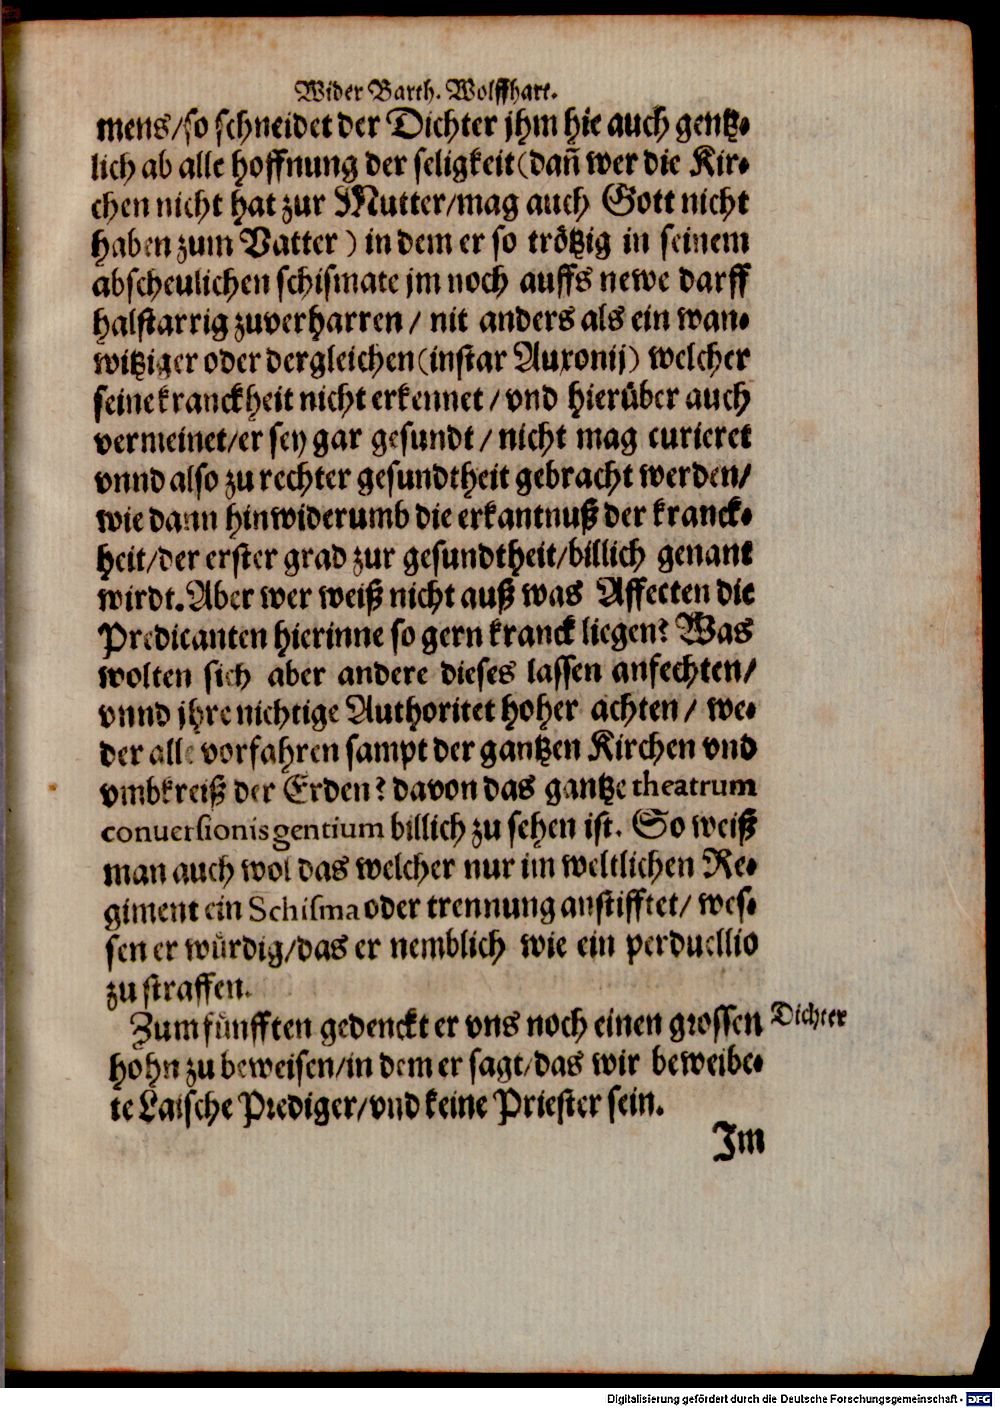 Wider Barth. Wolffhart.
mens/so schneidet der Dichter jhm hie auch gentz-
lich ab alle hoffnung der seligkeit (dañ wer die Kir-
chen nicht hat zur Mutter/mag auch Gott nicht
haben zum Vatter) in dem er so trötzig in seinem
abscheulichen schismate jm noch auffs newe darff
halstarrig zuverharren/ nit anders als ein wan-
witziger oder dergleichen (instar Auxonij) welcher
seine kranckheit nicht erkennet/vnd hierüber auch
vermeinet/er sey gar gesundt/nicht mag curieret
vnnd also zu rechter gesundtheit gebracht werden/
wie dann hinwiderumb die erkantnuß der kranck-
heit/der erster grad zur gesundtheit/billich genant
wirdt. Aber wer weiß nicht auß was Affecten die
Predicanten hierinne so gern kranck liegen? Was
wolten sich aber andere dieses lassen anfechten/
vnnd jhre nichtige Authoritet hoher achten/ we-
der alle vorfahren sampt der gantzen Kirchen vnd
vmbkreiß der Erden? davon das gantze theatrum
conuersionis gentium billich zu sehen ist. So weiß
man auch wol das welcher nur im weltlichen Re-
giment ein Schisma oder trennung anstifftet/ wes-
sen er würdig/das er nemblich wie ein perduellio
zu straffen.
Zum fünfften gedenckt er vns noch einen grossen
Dichter
hohn zu beweisen/in dem er sagt/das wir beweibe-
te Laische Prediger/vnd keine Priester sein.
Im
Digitalisierung gefördert durch die Deutsche Forschungsgemeinschaft - DFG